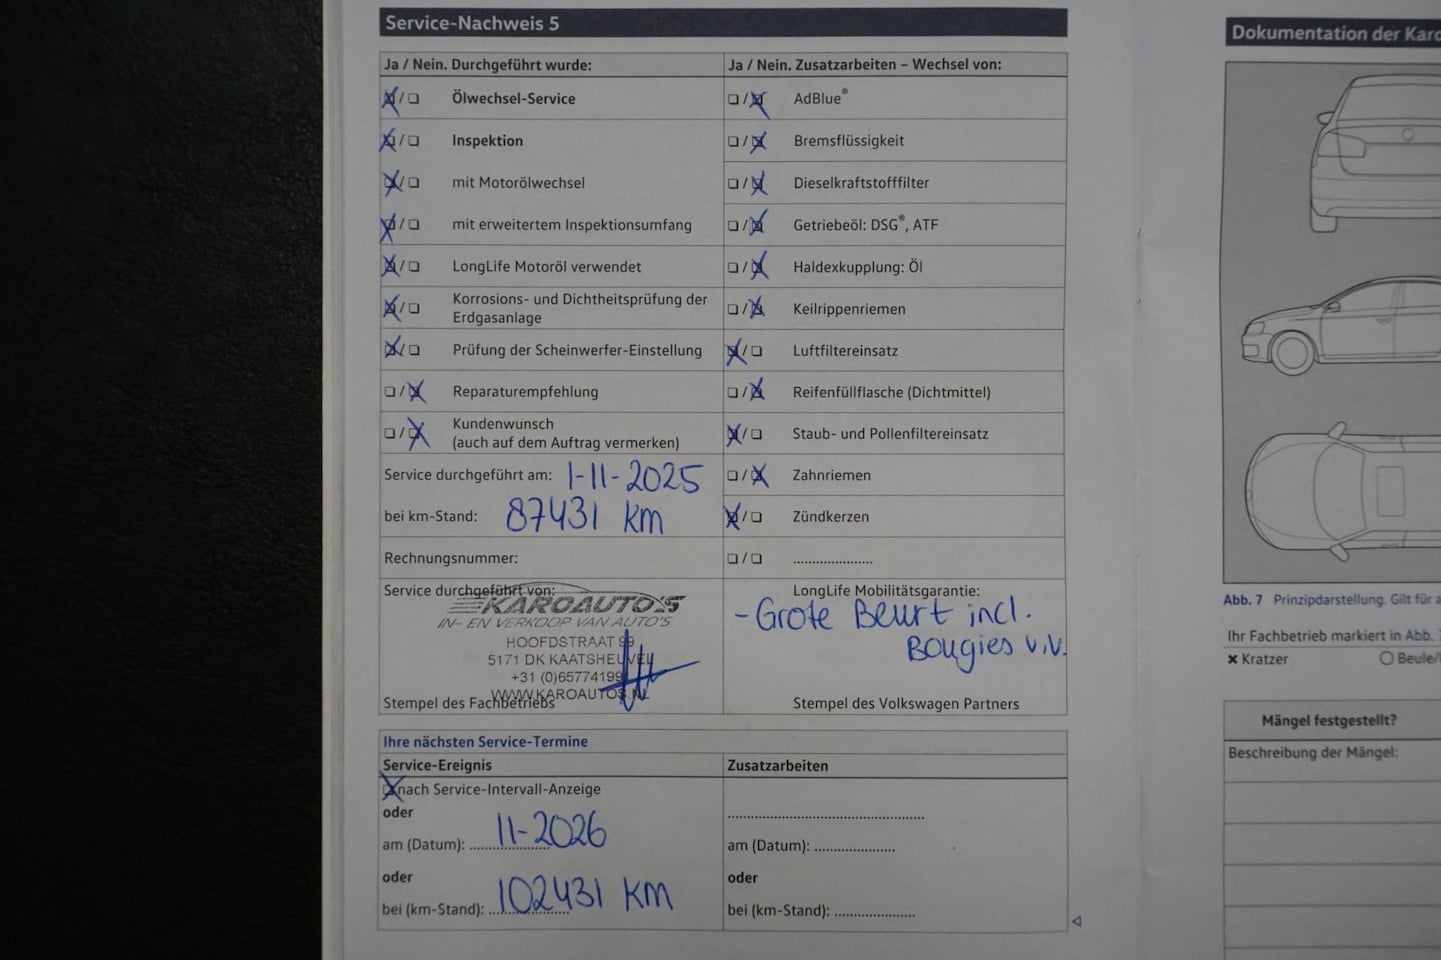 Service-Nachweis 5
Ja / Nein. Durchgeführt wurde:
Ölwechsel-Service
Inspektion
mit Motorölwechsel
mit erweitertem Inspektionsumfang
LongLife Motoröl verwendet
Korrosions- und Dichtheitsprüfung der
Erdgasanlage
Prüfung der Scheinwerfer-Einstellung
Reparaturempfehlung
Kundenwunsch
(auch auf dem Auftrag vermerken)
Service durchgeführt am: 1-11-2025
bei km-Stand: 87431 km
Rechnungsnummer:
Service durchgeführt von:
KAROAUTO'S
IN- EN VERKOOP VAN AUTO'S
HOOFDSTRAAT 99
5171 DK KAATSHEUVEL
+31 (0)65774199
WWW.KAROAUTOS.NL
Stempel des Fachbetriebs
Ja / Nein. Zusatzarbeiten – Wechsel von:
AdBlue®
Bremsflüssigkeit
Dieselkraftstofffilter
Getriebeöl: DSG®, ATF
Haldexkupplung: Öl
Keilrippenriemen
Luftfiltereinsatz
Reifenfüllflasche (Dichtmittel)
Staub- und Pollenfiltereinsatz
Zahnriemen
Zündkerzen
LongLife Mobilitätsgarantie:
- Grote Beurt incl.
Bougies v.v.
Stempel des Volkswagen Partners
Ihre nächsten Service-Termine
Service-Ereignis
nach Service-Intervall-Anzeige
oder
am (Datum): 11-2026
oder
bei (km-Stand): 102431 km
Zusatzarbeiten
am (Datum):
oder
bei (km-Stand):
Dokumentation der Karo
Abb. 7 Prinzipdarstellung. Gilt für a
Ihr Fachbetrieb markiert in Abb. 7
× Kratzer
○ Beule/
Mängel festgestellt?
Beschreibung der Mängel: